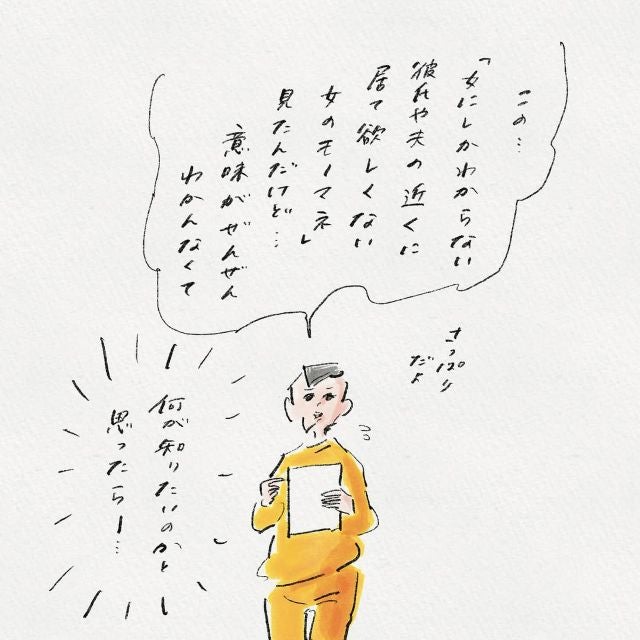 この…
「女にしかわからない
彼氏や夫の近くに
居て欲しくない
女のモノマネ」
見たんだけど…
意味がぜんぜん
わかんなくて
さっぱり
だよ
何が知りたいのかと
思ったらー…